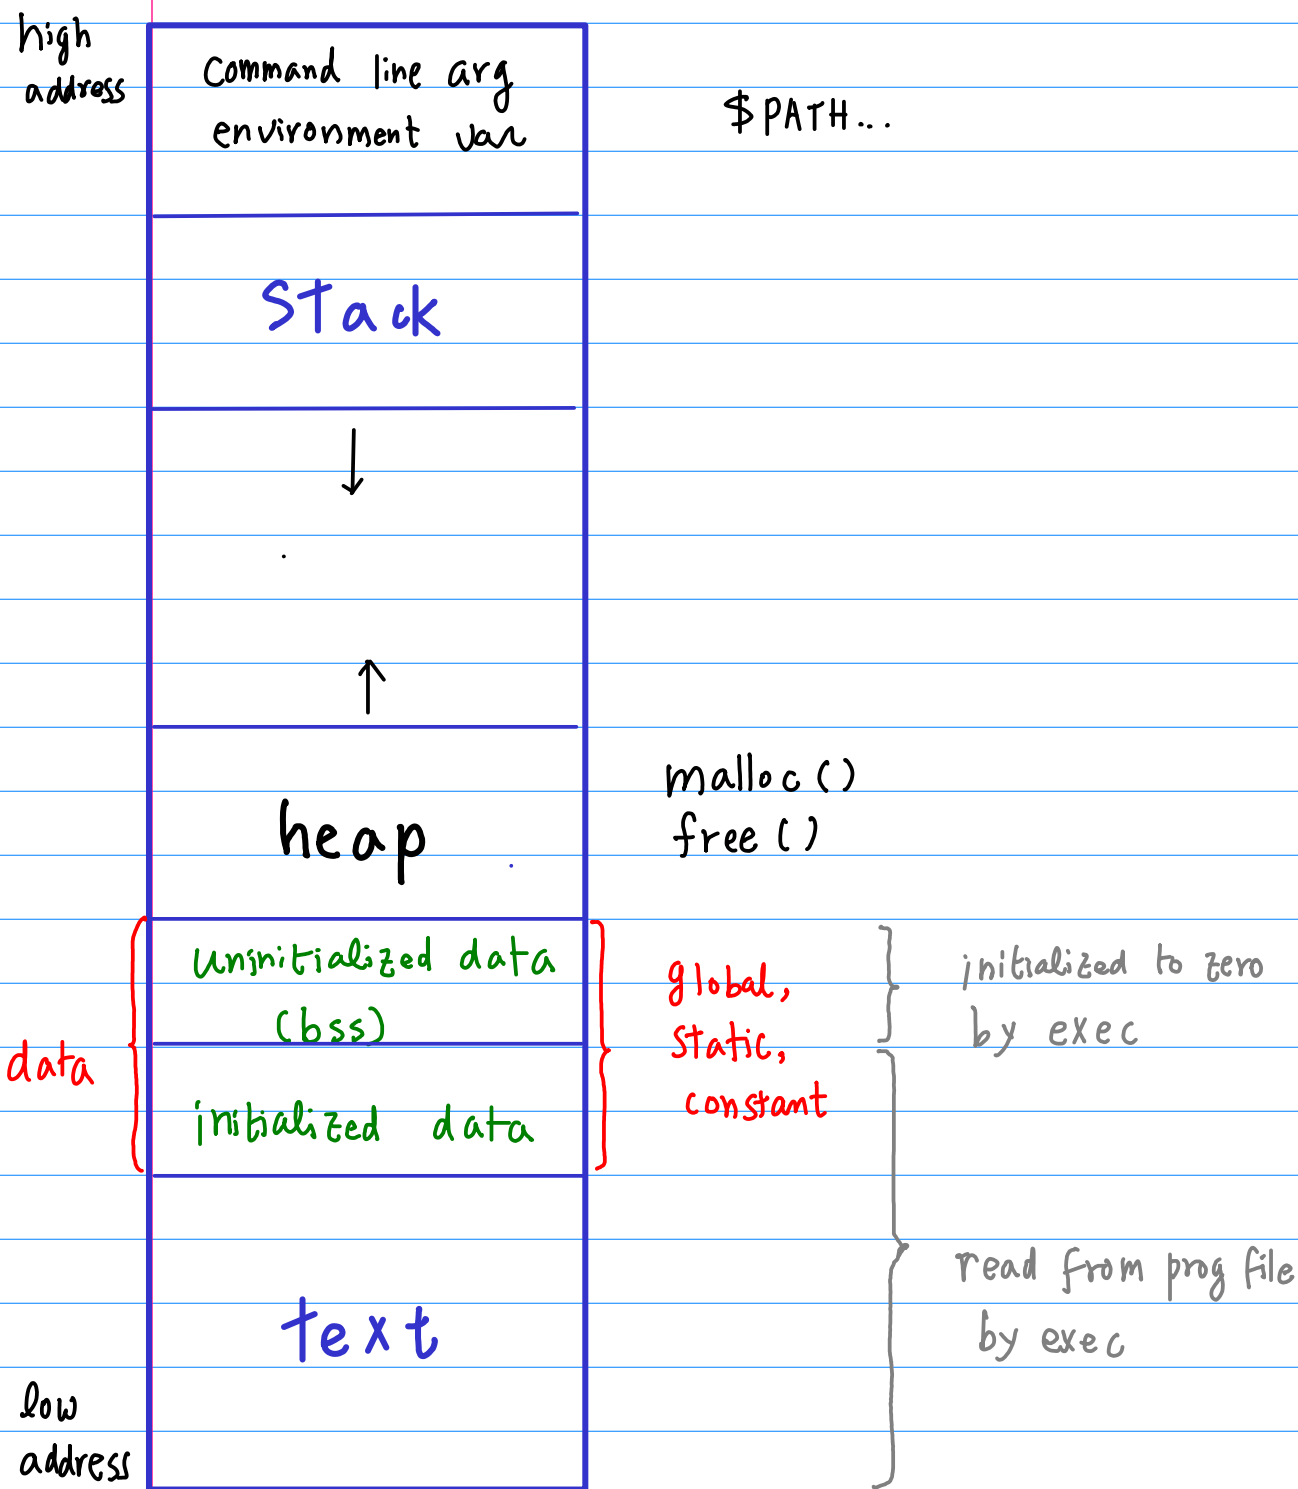 high
address
Command line arg
environment var
$PATH...
Stack
heap
malloc()
free()
data
uninitialized data
(bss)
initialized data
global,
static,
constant
initialized to zero
by exec
read from prog file
by exec
text
low
address